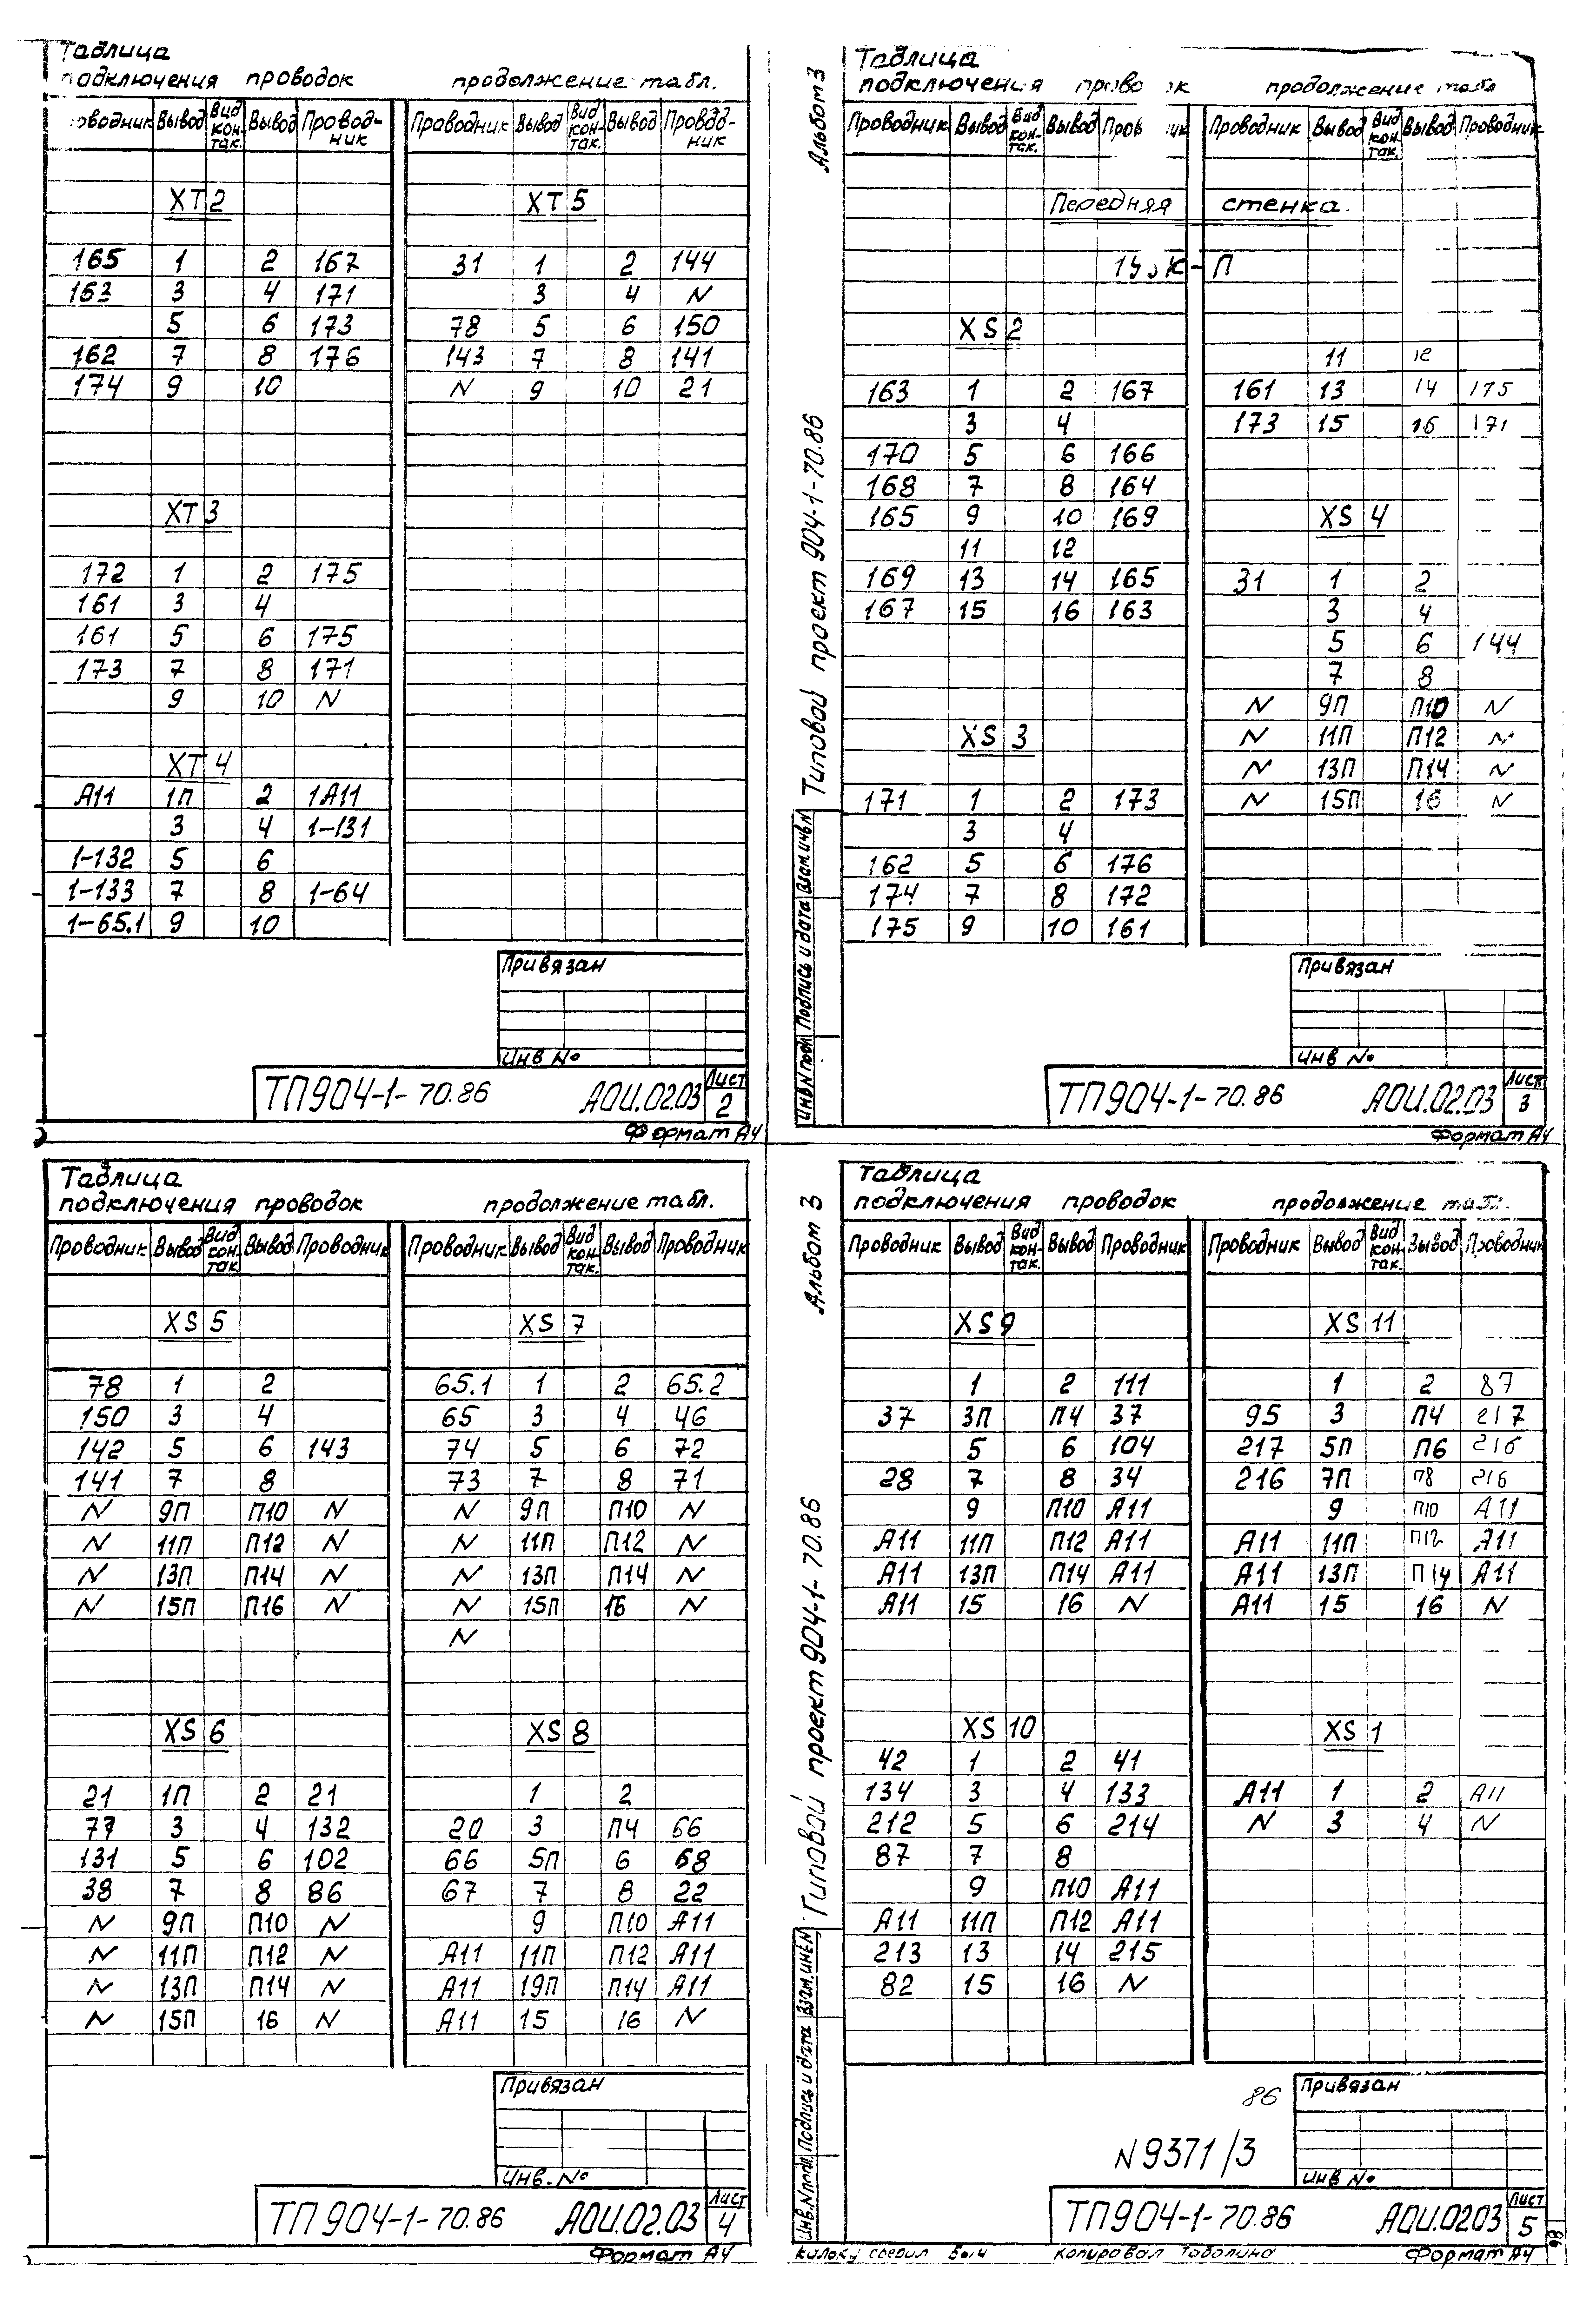 Таблица
подключения проводок продолжение табл.
Проводник Вывод Вид кон-так. Вывод Провод-ник Проводник Вывод Вид кон-так. Вывод Провод-ник
XT 2 XT 5
165 1 2 167 31 1 2 144
163 3 4 171 3 4 N
5 6 173 78 5 6 150
162 7 8 176 143 7 8 141
174 9 10 N 9 10 21
XT 3
172 1 2 175
161 3 4
161 5 6 175
173 7 8 171
9 10 N
XT 4
А11 1П 2 1А11
3 4 1-131
1-132 5 6
1-133 7 8 1-64
1-65.1 9 10
Привязан
Инв №
ТП904-1-70.86 АОИ.02.03 Лист 2
Формат А4
Альбом 3
Типовой проект 904-1-70.86
Инв.N подл. Подпись и дата Взам.инв.N
Таблица
подключения продолжение табл
Проводник Вывод Вид кон-так. Вывод Проводник Вывод Вид кон-так. Вывод Проводник
Передняя стенка
XS 2
11 12
163 1 2 167 161 13 14 175
3 4 173 15 16 171
170 5 6 166
168 7 8 164
165 9 10 169 XS 4
11 12
169 13 14 165 31 1 2
167 15 16 163 3 4
5 6 144
7 8
N 9П П10 N
XS 3 N 11П П12 N
N 13П П14 N
171 1 2 173 N 15П 16 N
3 4
162 5 6 176
174 7 8 172
175 9 10 161
Привязан
Инв №
ТП904-1-70.86 АОИ.02.03 Лист 3
Формат А4
Таблица
подключения проводок продолжение табл.
Проводник Вывод Вид кон-так. Вывод Проводник Проводник Вывод Вид кон-так. Вывод Проводник
XS 5 XS 7
78 1 2 65.1 1 2 65.2
150 3 4 65 3 4 46
142 5 6 143 74 5 6 72
141 7 8 73 7 8 71
N 9П П10 N N 9П П10 N
N 11П П12 N N 11П П12 N
N 13П П14 N N 13П П14 N
N 15П П16 N N 15П 16 N
N
XS 6 XS 8
21 1П 2 21 1 2
77 3 4 132 20 3 П4 66
131 5 6 102 66 5П 6 68
38 7 8 86 67 7 8 22
N 9П П10 N 9 П10 А11
N 11П П12 N А11 11П П12 А11
N 13П П14 N А11 19П П14 А11
N 15П 16 N А11 15 16 N
Привязан
Инв. №
ТП904-1-70.86 АОИ.02.03 Лист 4
Формат А4
Альбом 3
Типовой проект 904-1-70.86
Инв.N подл. Подпись и дата Взам.инв.N
Таблица
подключения проводок продолжение табл.
Проводник Вывод Вид кон-так. Вывод Проводник Проводник Вывод Вид кон-так. Вывод Проводник
XS 9 XS 11
1 2 111 1 2 87
37 3П П4 37 95 3 П4 217
5 6 104 217 5П П6 216
28 7 8 34 216 7П П8 216
9 П10 А11 9 П10 А11
А11 11П П12 А11 А11 11П П12 А11
А11 13П П14 А11 А11 13П П14 А11
А11 15 16 N А11 15 16 N
XS 10 XS 1
42 1 2 41
134 3 4 133 А11 1 2 А11
212 5 6 214 N 3 4 N
87 7 8
9 П10 А11
А11 11П П12 А11
213 13 14 215
82 15 16 N
86
N 9371/3
Привязан
Инв №
ТП904-1-70.86 АОИ.02.03 Лист 5
86
Копировал Формат А4